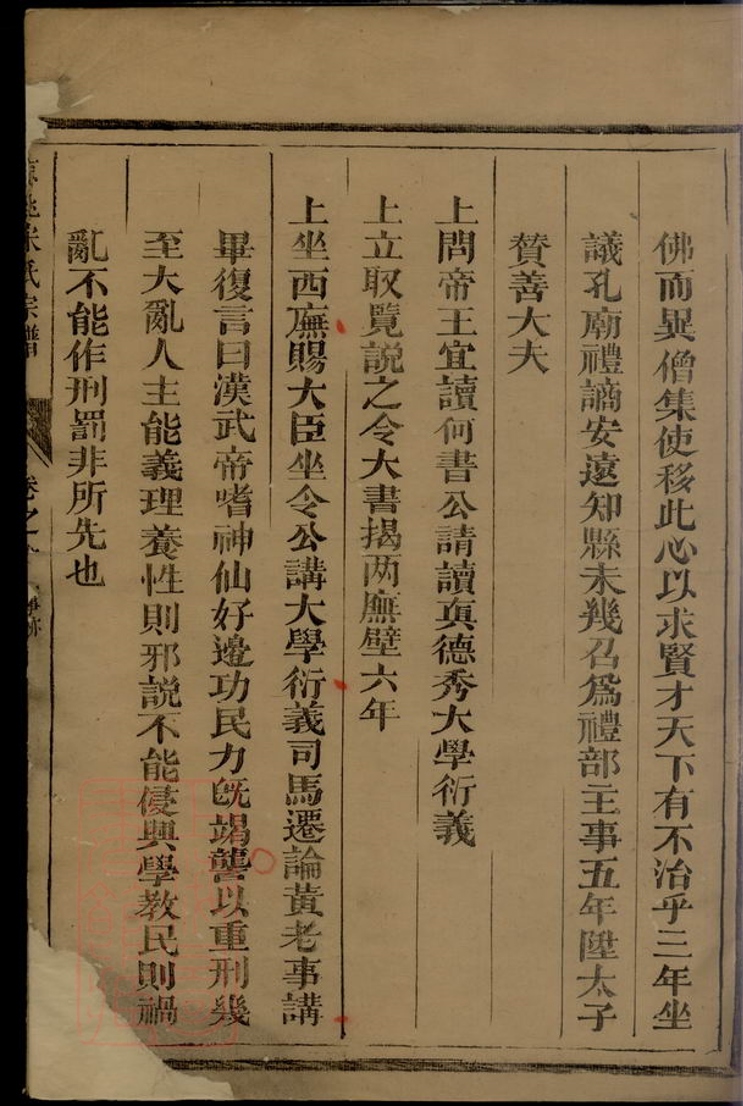 佛而異僧集使移此心以求賢才天下有不治乎三年坐
議孔廟禮謫安遠知縣未幾召爲禮部主事五年陞太子
贊善大夫
上問帝王宜讀何書公請讀眞德秀大學衍義
上立取覽説之令大書揭两廡壁六年
上坐西廡賜大臣坐令公講大學衍義司馬遷論黃老事講
畢復言曰漢武帝嗜神仙好邉功民力旣竭讋以重刑幾
至大亂人主能義理養性則邪説不能侵興學教民則禍
亂不能作刑罰非所先也
宋氏宗譜
卷之